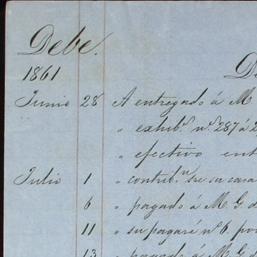 Debe.
1861
Junio 28 A entregado á M
" exhib.n n.o 287 á 2
" efectivo ent
Julio 1 " contrib.n su casa
6 " pagado á M. G. d
11 " su pagaré n.o 6. por
13 " pagado á M. G.